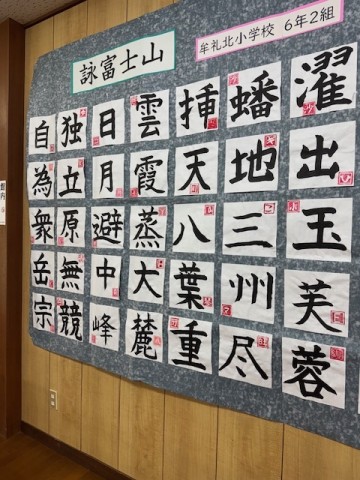 詠富士山
牟礼北小学校 6年2組
濯出玉芙蓉
蟠地三州尽
挿天八葉重
雲霞蒸大麓
日月避中峰
独立原無競
自為衆岳宗